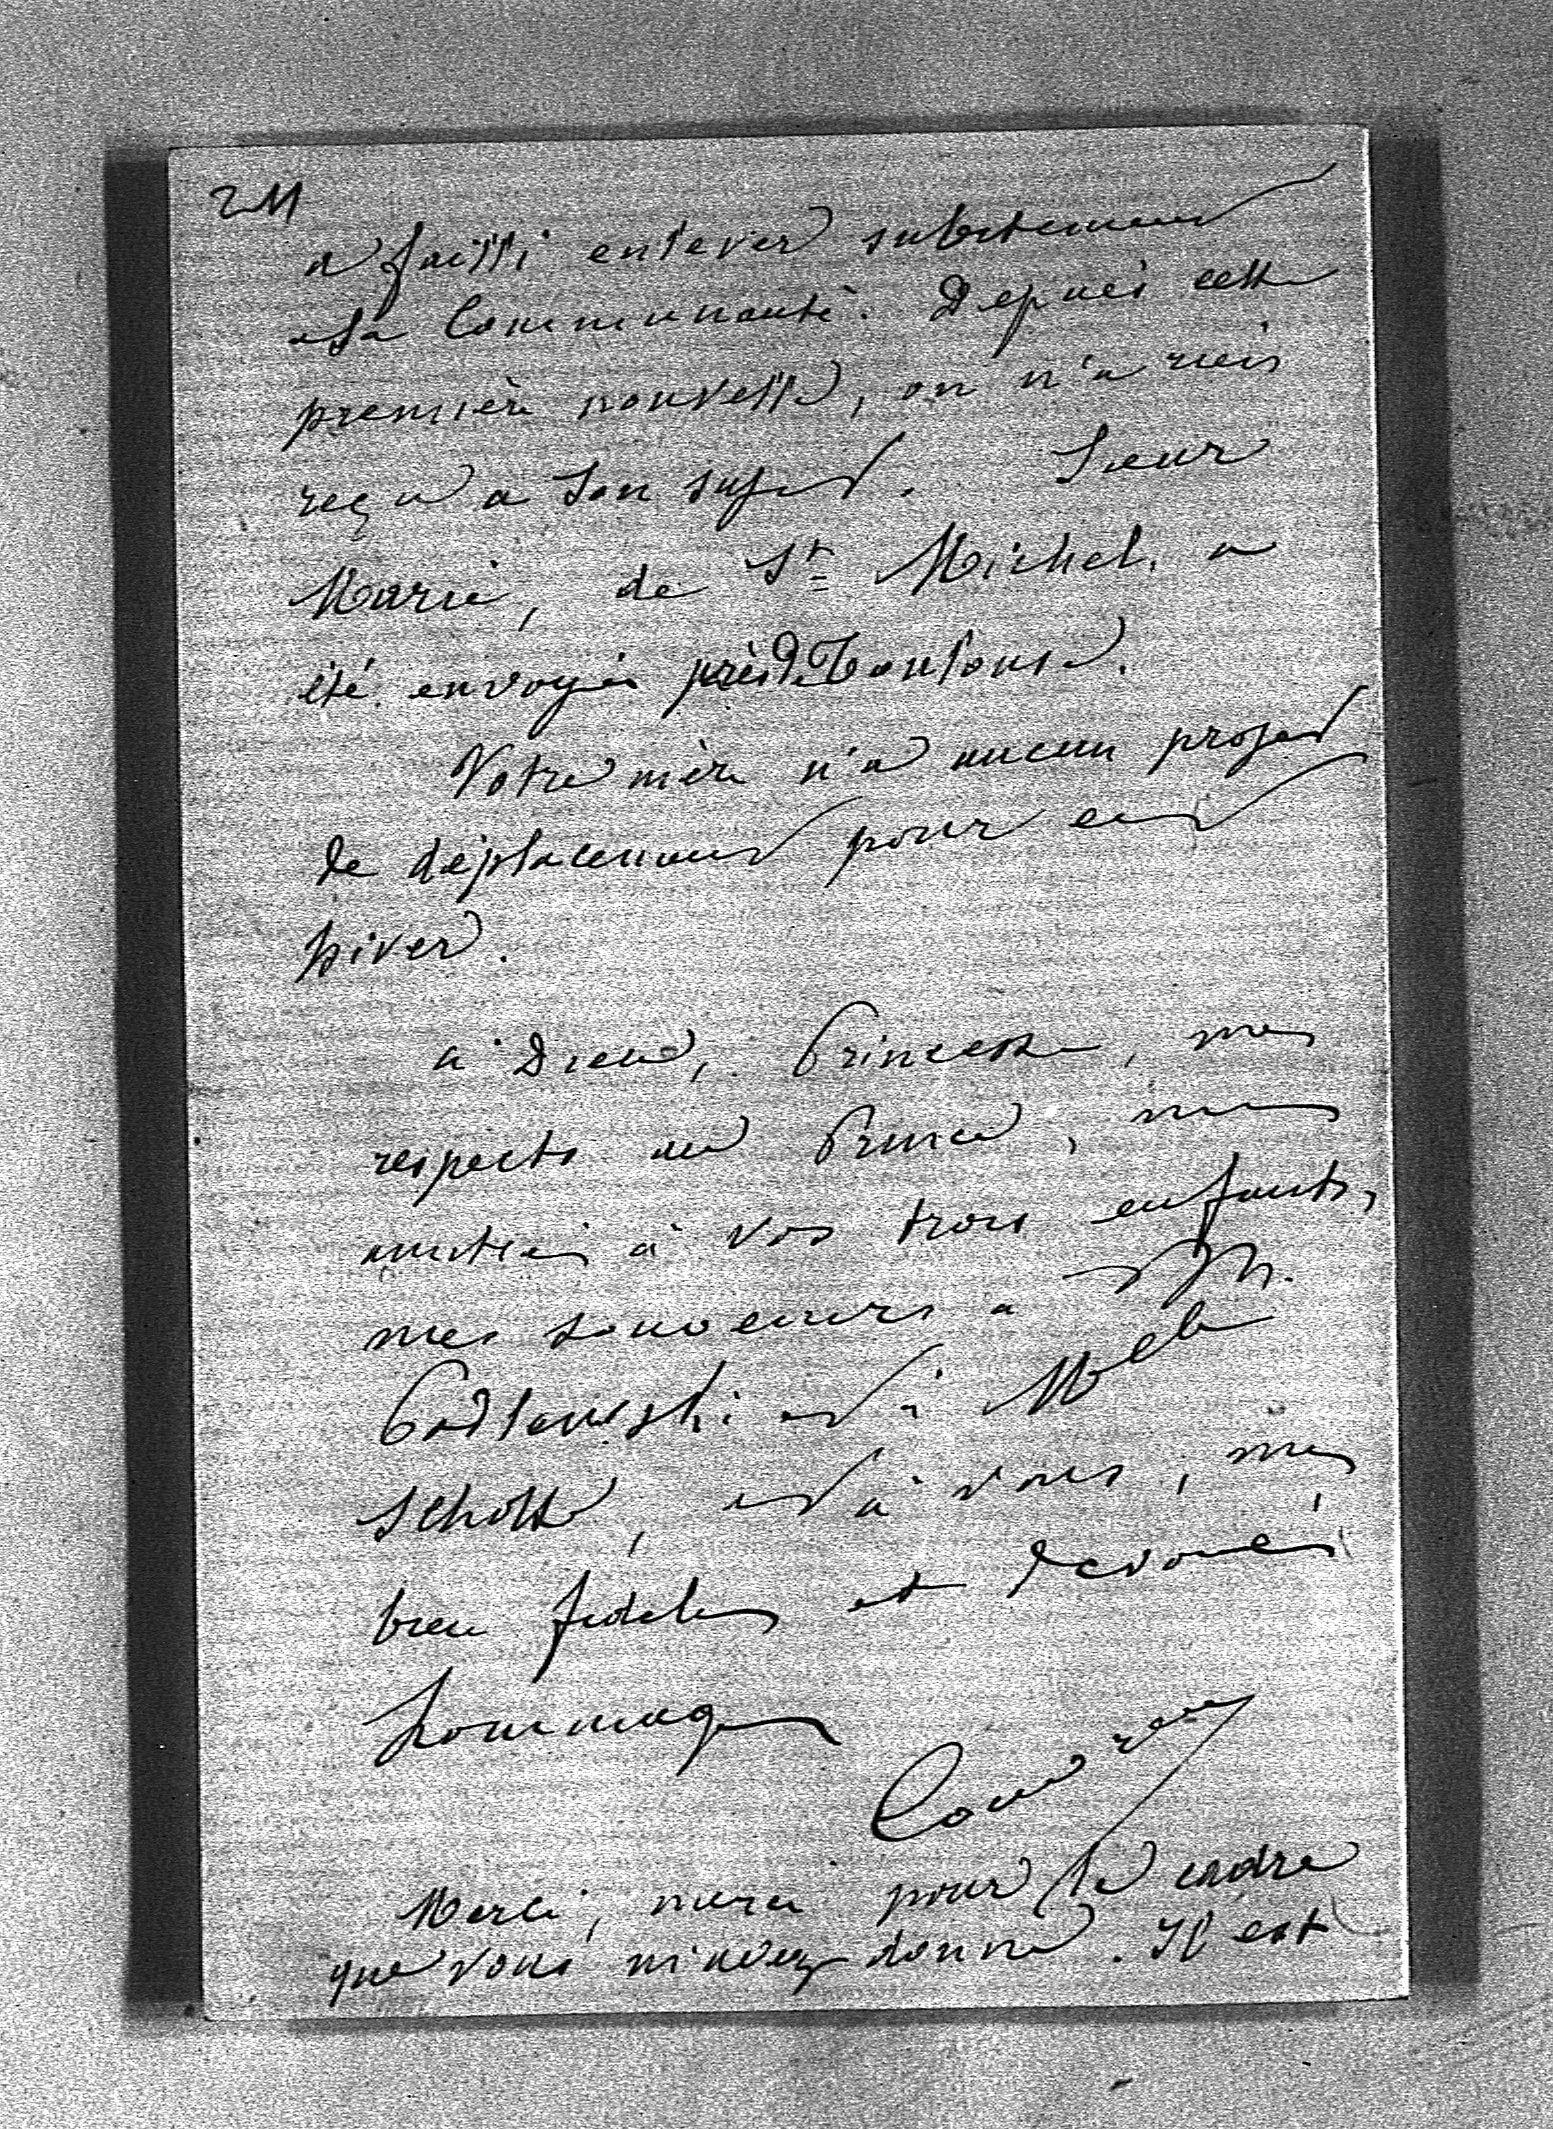 211
a failli enlever subitement
sa Communauté. Depuis cette
première nouvelle, on n'a rien
reçu a son sujet. Sœur
Marie, de St Michel, a
été envoyée près de Toulouse.
Votre mère n'a aucun projet
de déplacement pour cet
hiver.
a Dieu, Princesse, mes
respects au Prince, mes
amitiés à vos trois enfants,
mes souvenirs a M.
Podlewski et à Melle
Scholl, et à vous, mes
bien fidèles et dévoués
hommages
Merci, merci pour le cadre
que vous m'avez donné. Il est